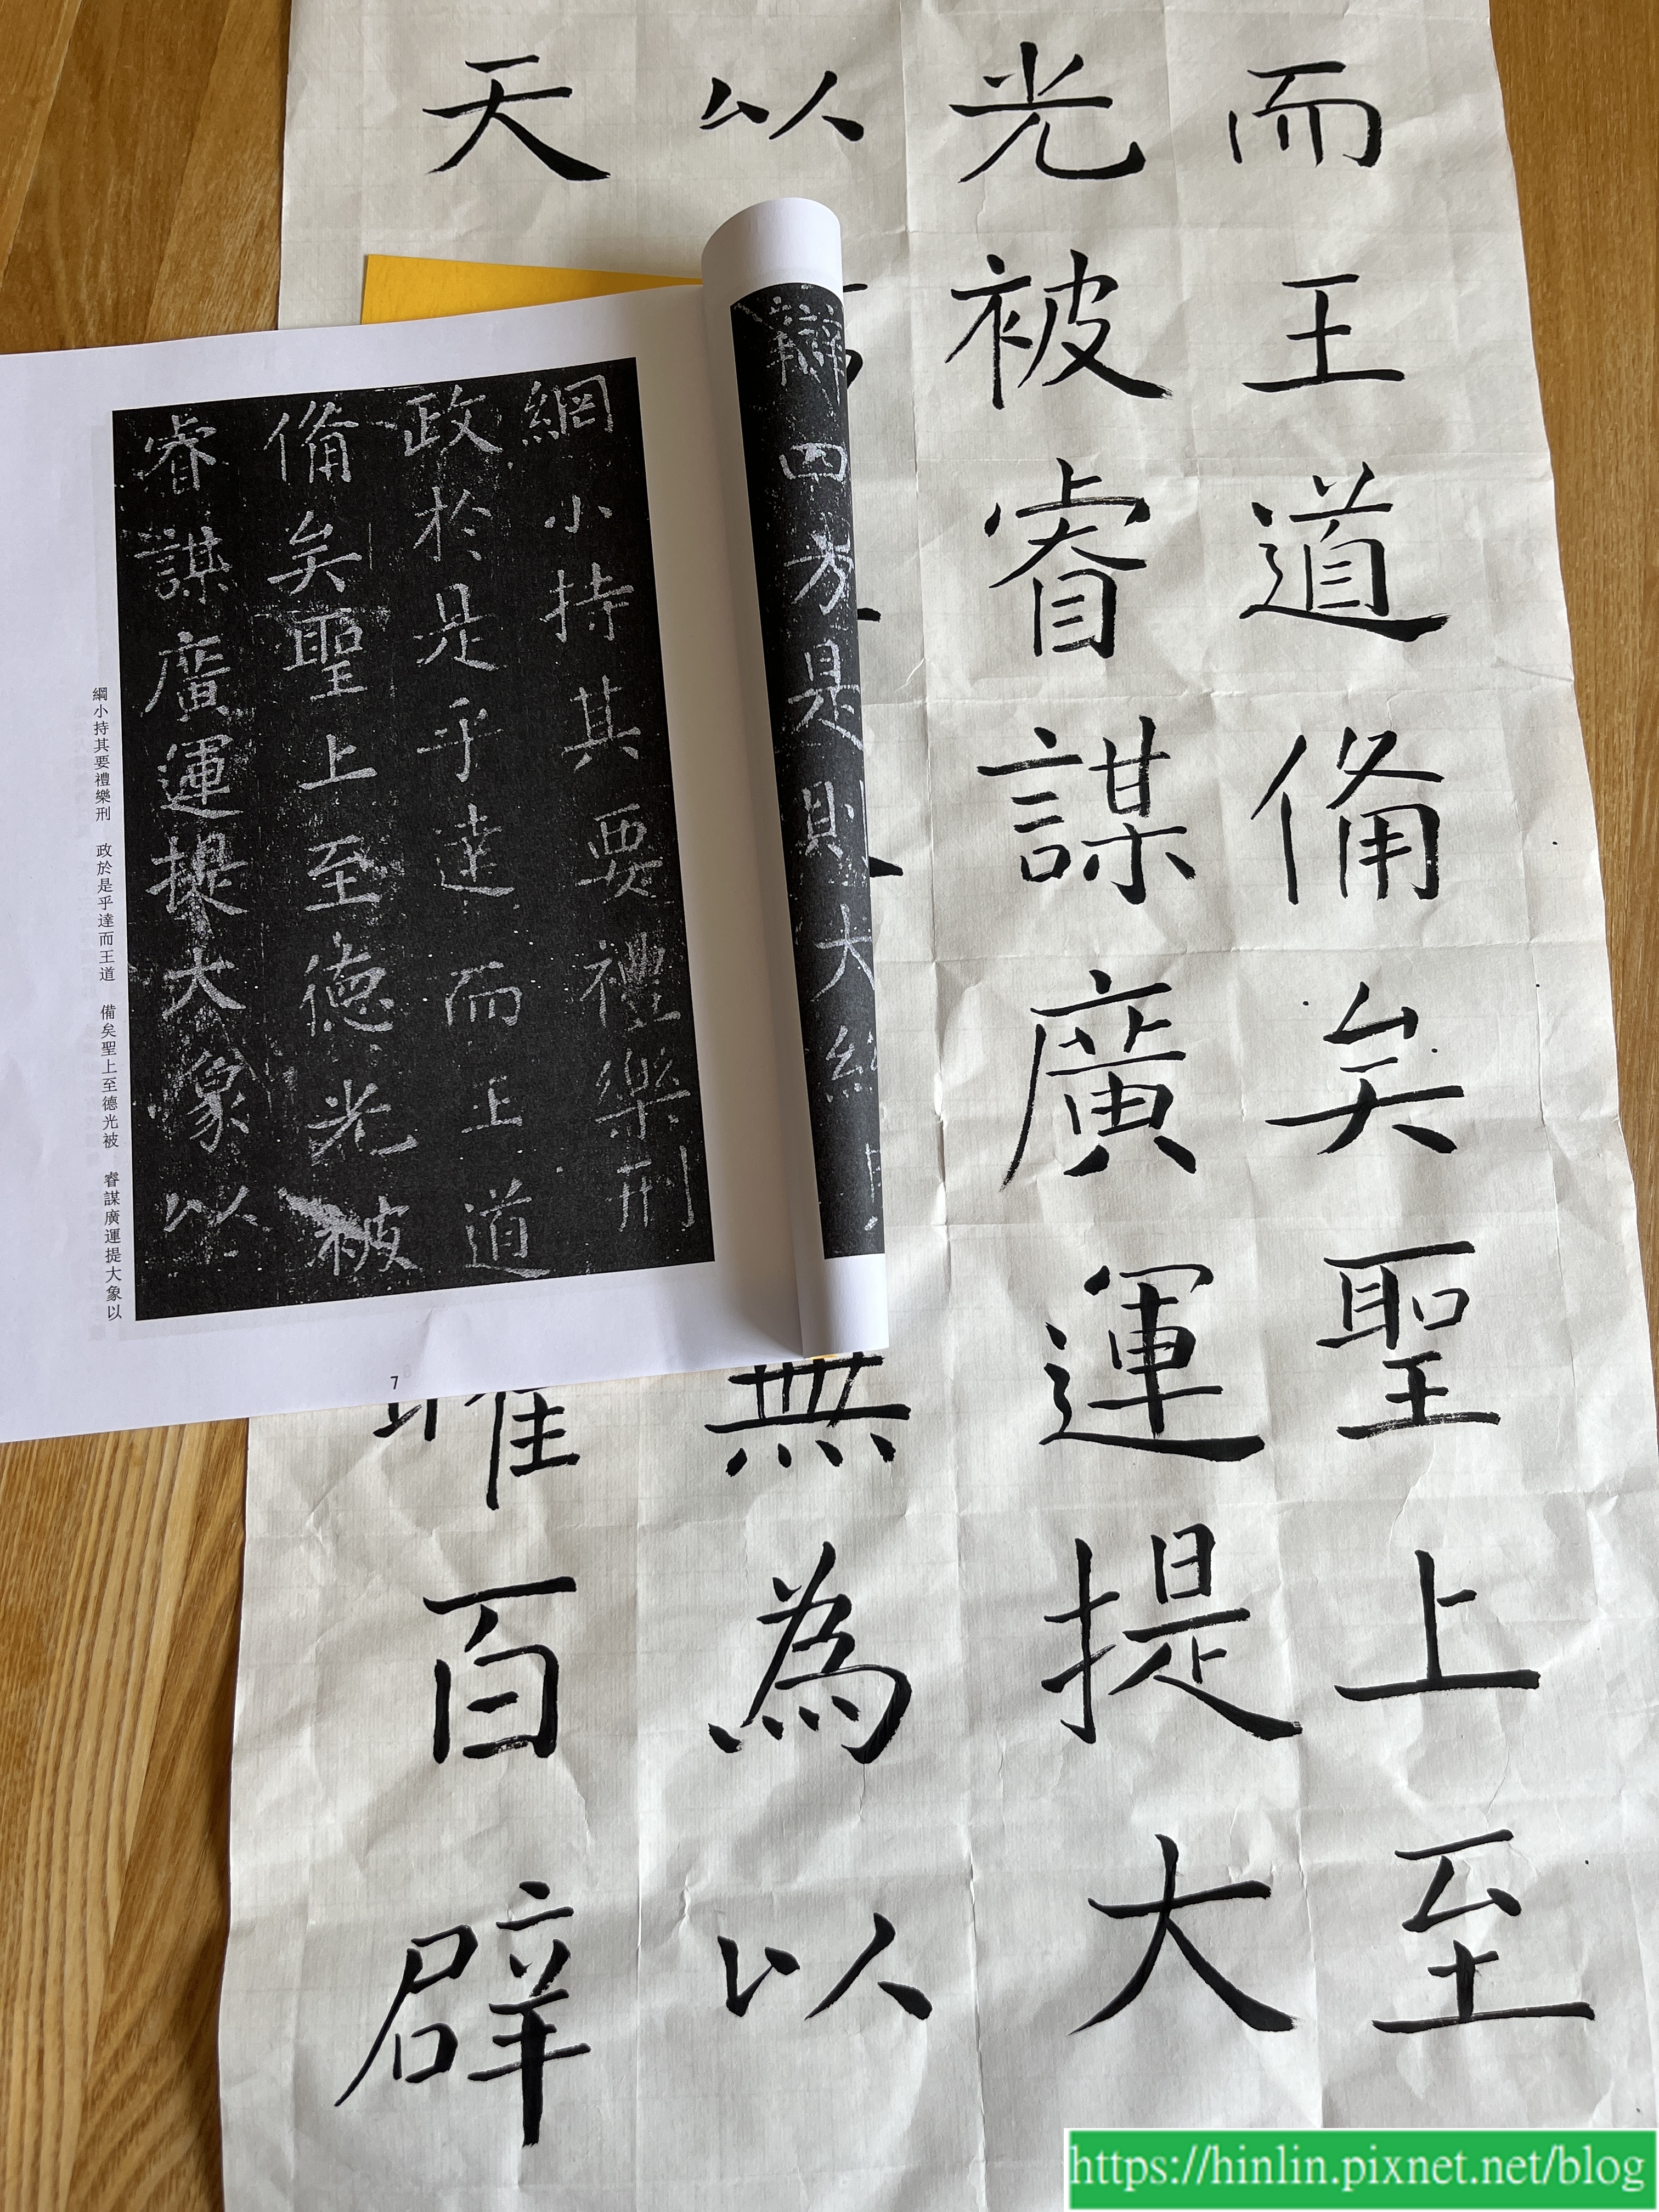 而王道備矣聖上至
光被睿謀廣運提大
以
無為以
天
百辟
辯四方是則大
綱小持其要禮樂刑
政於是乎達而王道
備矣聖上至德光被
睿謀廣運提大象以
綱小持其要禮樂刑 政於是乎達而王道 備矣聖上至德光被 睿謀廣運提大象以
7
https://hinlin.pixnet.net/blog